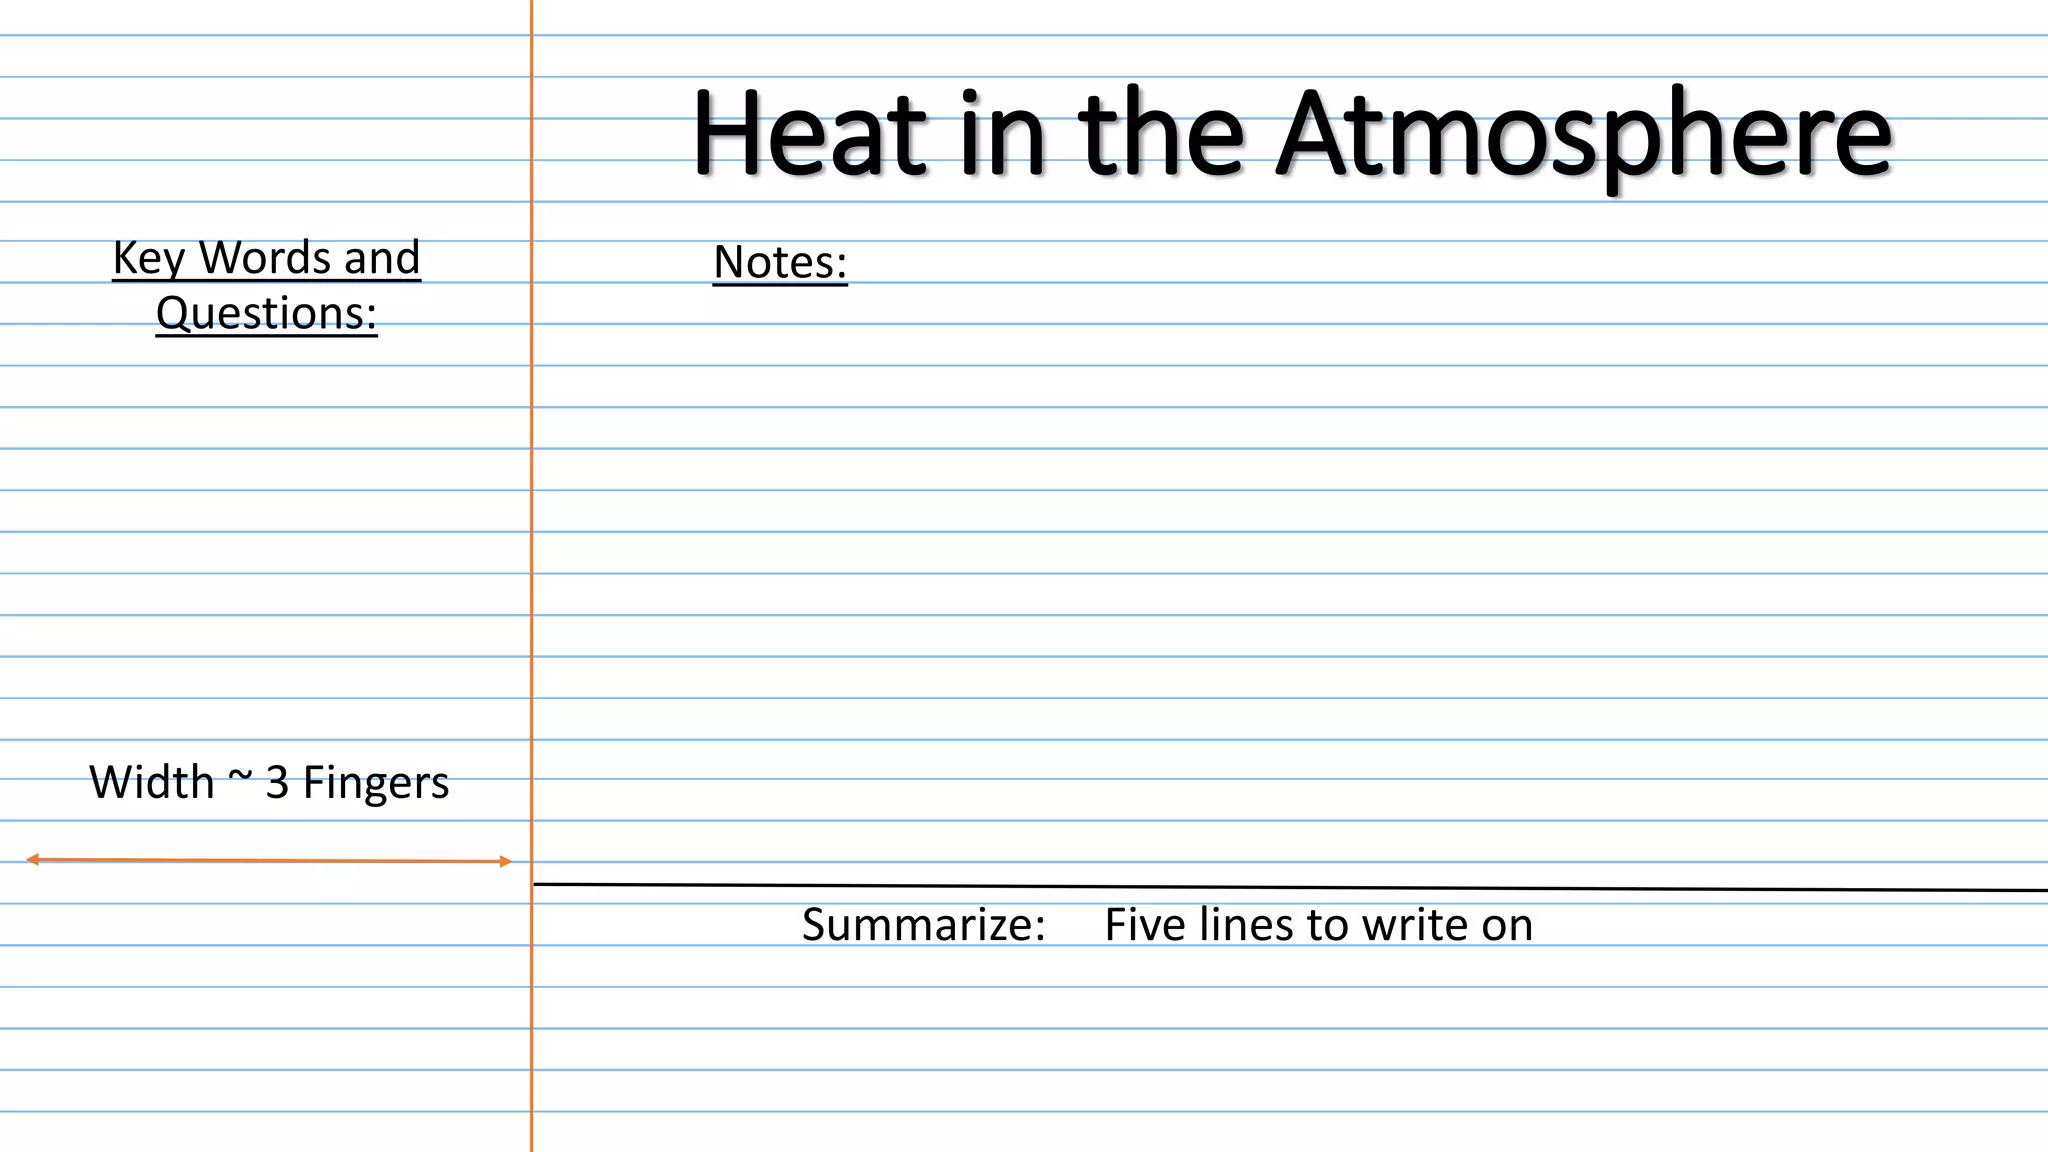 Heat in the Atmosphere
Key Words and
Questions:
Notes:
Width ~ 3 Fingers
Summarize: Five lines to write on